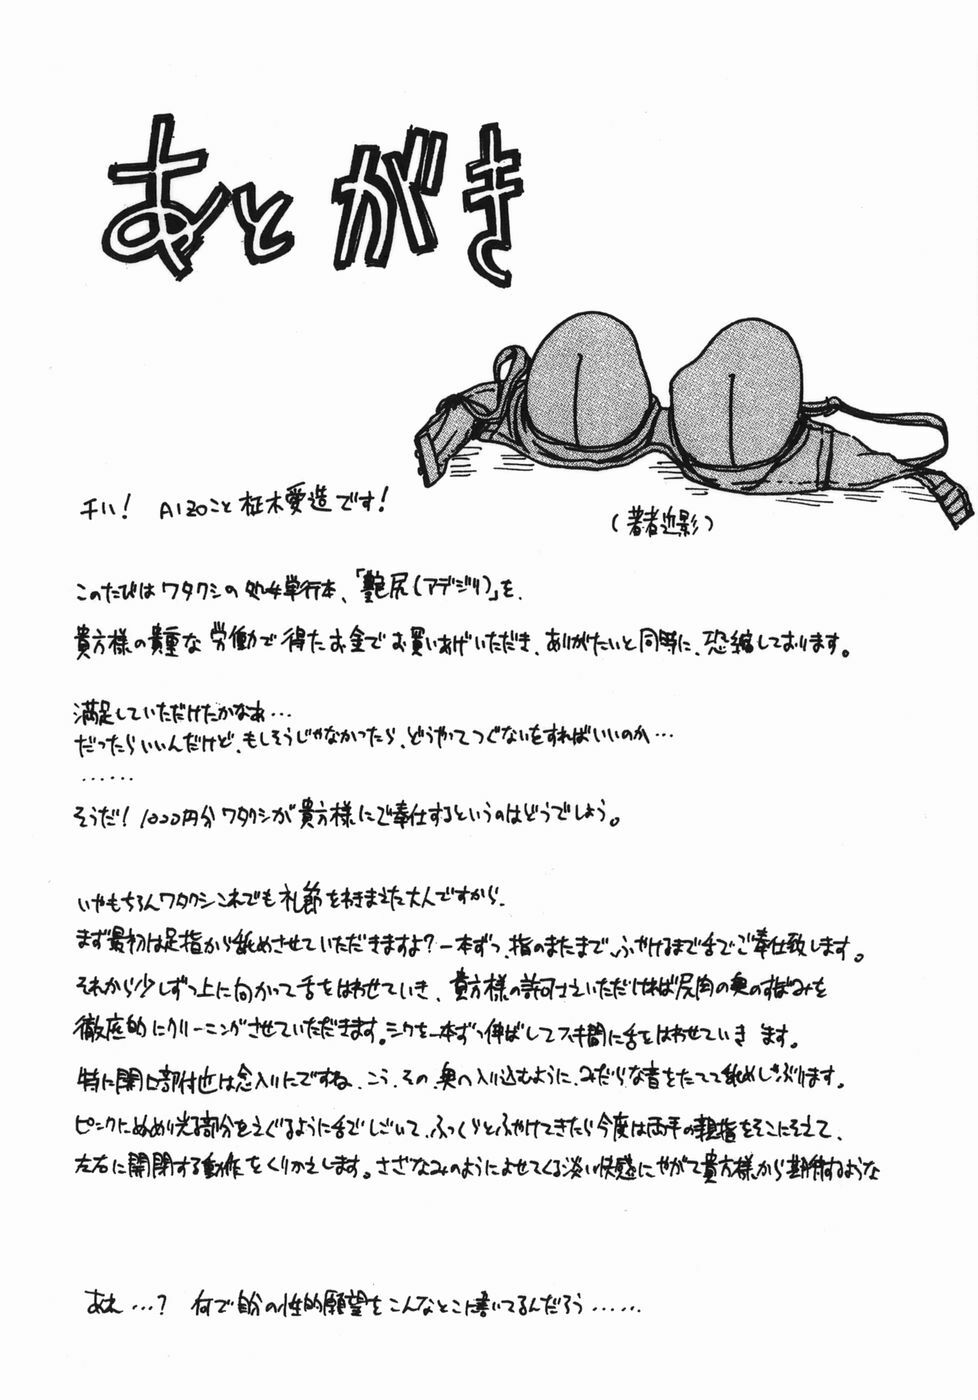 あとがき
チハ! AIZOこと柾木愛造です!
(著者近影)
このたびはワタクシの処女単行本、「艶尻(アデジリ)」を、
貴方様の貴重な労働で得たお金でお買いあげいただき、ありがたいと同時に、恐縮しております。
満足していただけたかなぁ…
だったらいいんだけど、もしそうじゃなかったら、どうやってつぐないをすればいいのか…
……
そうだ! 1000円分ワタクシが貴方様にご奉仕するというのはどうでしよう。
いやもちろんワタクシこれでも礼節をわきまえた大人ですから、
まず最初は足指から舐めさせていただきますよ?一本ずつ、指のまたまで、ふやけるまで舌でご奉仕致します。
それから少しずつ上に向かって舌をはわせていき、貴方様の許可さえいただければ尻肉の奥のすぼみを
徹底的にクリーニングさせていただきます。シワを一本ずつ伸ばしてスキ間に舌をはわせていき ます。
特に開口部付近は念入りにですね、こう、その、奥へ入り込むように、みだらな音をたてて舐めしゃぶります。
ピンクにぬめり光る部分をえぐるように舌でしごいて、ふっくらとふやけてきたら今度は両手の親指をそこにそえて、
左右に開閉する動作をくりかえします。さざなみのようによせてくる淡い快感にやがて貴方様から期待するような
あれ…? 何で自分の性的願望をこんなとこに書いてるんだろう……